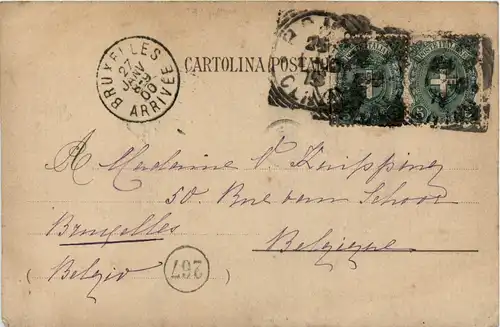 BRUXELLES
27
JANV
8-9
00
ARRIVÉE
CARTOLINA POSTALE
A Madame V. Knipping
50. Rue van Schoor
Bruxelles
Belgique
(Belgio)
267